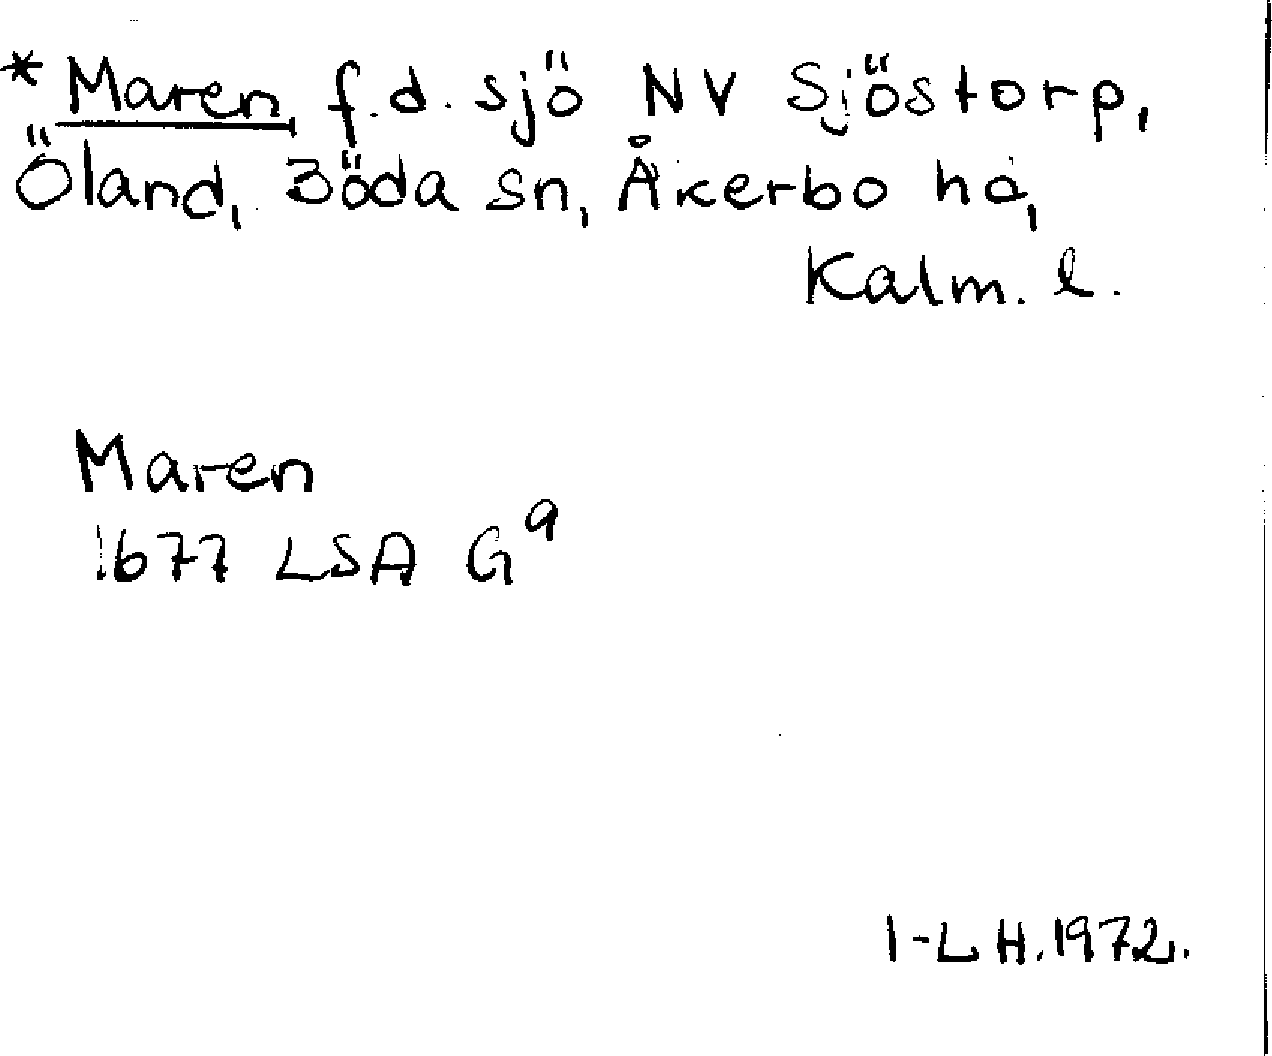 *Maren f.d. sjö NV Sjöstorp,
Öland, Böda sn, Åkerbo hd,
Kalm. l.
Maren
1677 LSA G9
I-L H. 1972.